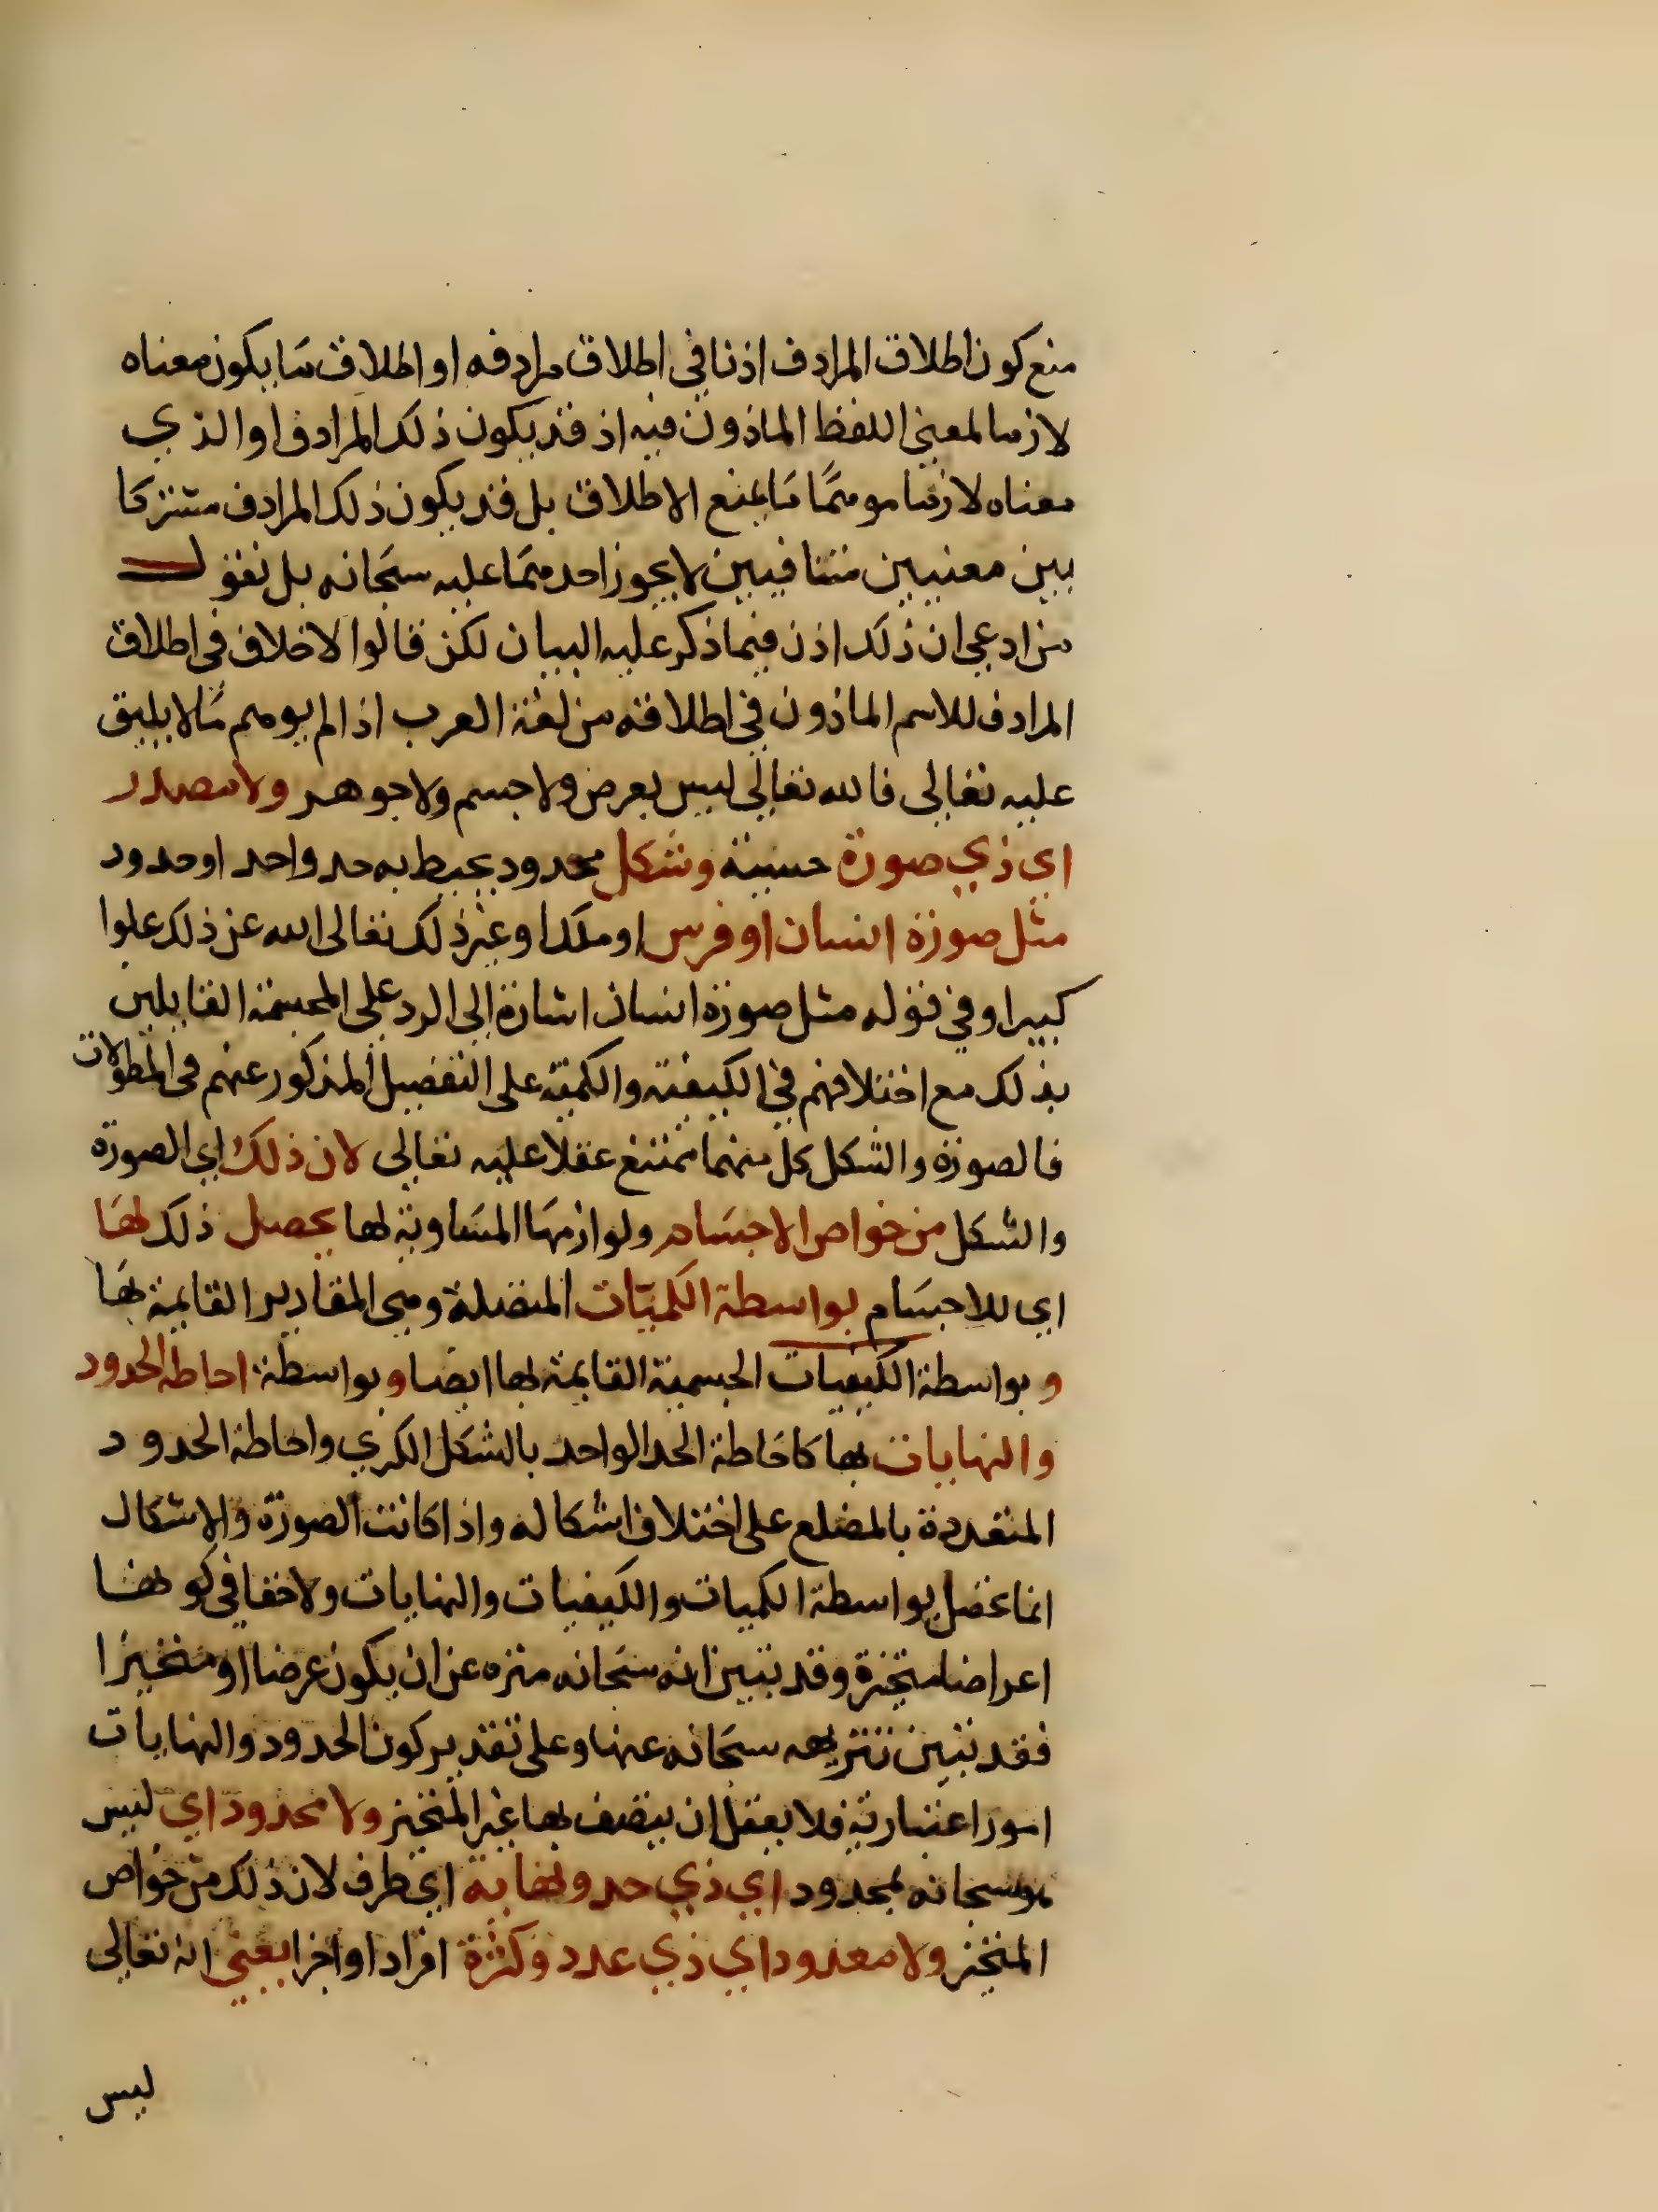 منع كون اطلاق المرادف اذنا في اطلاق مرادفه او اطلاق ما يكون معناه
لازما لمعنى اللفظ الماذون فيه اذ قد يكون ذلك المرادف او الذي
معناه لازما موهما ما يمنع الاطلاق بل قد يكون ذلك المرادف مشتركا
بين معنيين متنافيين لا يجوز احدهما عليه سبحانه بل نقول
من ادعى ان ذلك اذن فيما ذكر عليه البيان لكن قالوا لا خلاف في اطلاق
المرادف للاسم الماذون في اطلاقه من لغة العرب اذا لم يوهم ما لا يليق
عليه تعالى فالله تعالى ليس بعرض ولا جسم ولا جوهر ولا مصور
اي ذي صورة حسية وشكل محدود يحيط به حد واحد او حدود
مثل صورة انسان او فرس او ملك او غير ذلك تعالى الله عن ذلك علوا
كبيرا وفي قوله مثل صورة انسان اشارة الى الرد على المجسمة القايلين
بذلك مع اختلافهم في الكيفية والكمية على التفصيل المذكور عنهم في المطولات
فالصورة والشكل كل منهما ممتنع عقلا عليه تعالى لان ذلك اي الصورة
والشكل من خواص الاجسام ولوازمها المساوية لها يحصل ذلك لها
اي للاجسام بواسطة الكميات المتصلة وهي المقادير القايمة بها
و بواسطة الكيفيات الجسمية القايمة بها ايضا و بواسطة احاطة الحدود
والنهايات بها كاحاطة الحد الواحد بالشكل الكري واحاطة الحدود
المتعددة بالمضلع على اختلاف اشكاله واذا كانت الصورة والاشكال
انما تحصل بواسطة الكميات والكيفيات والنهايات ولا خفا في كونها
اعراضا متحيزة وقد تبين انه سبحانه منزه عن ان يكون عرضا او متحيزا
فقد تبين تنزيهه سبحانه عنها وعلى تقدير كون الحدود والنهايات
امورا اعتبارية فلا يعقل ان يتصف بها غير المتحيز ولا محدود اي ليس
هو سبحانه بمحدود اي ذي حد ونهاية اي طرف لان ذلك من خواص
المتحيز ولا معدود اي ذي عدد وكثرة افراد او اجزا يعني انه تعالى
ليس